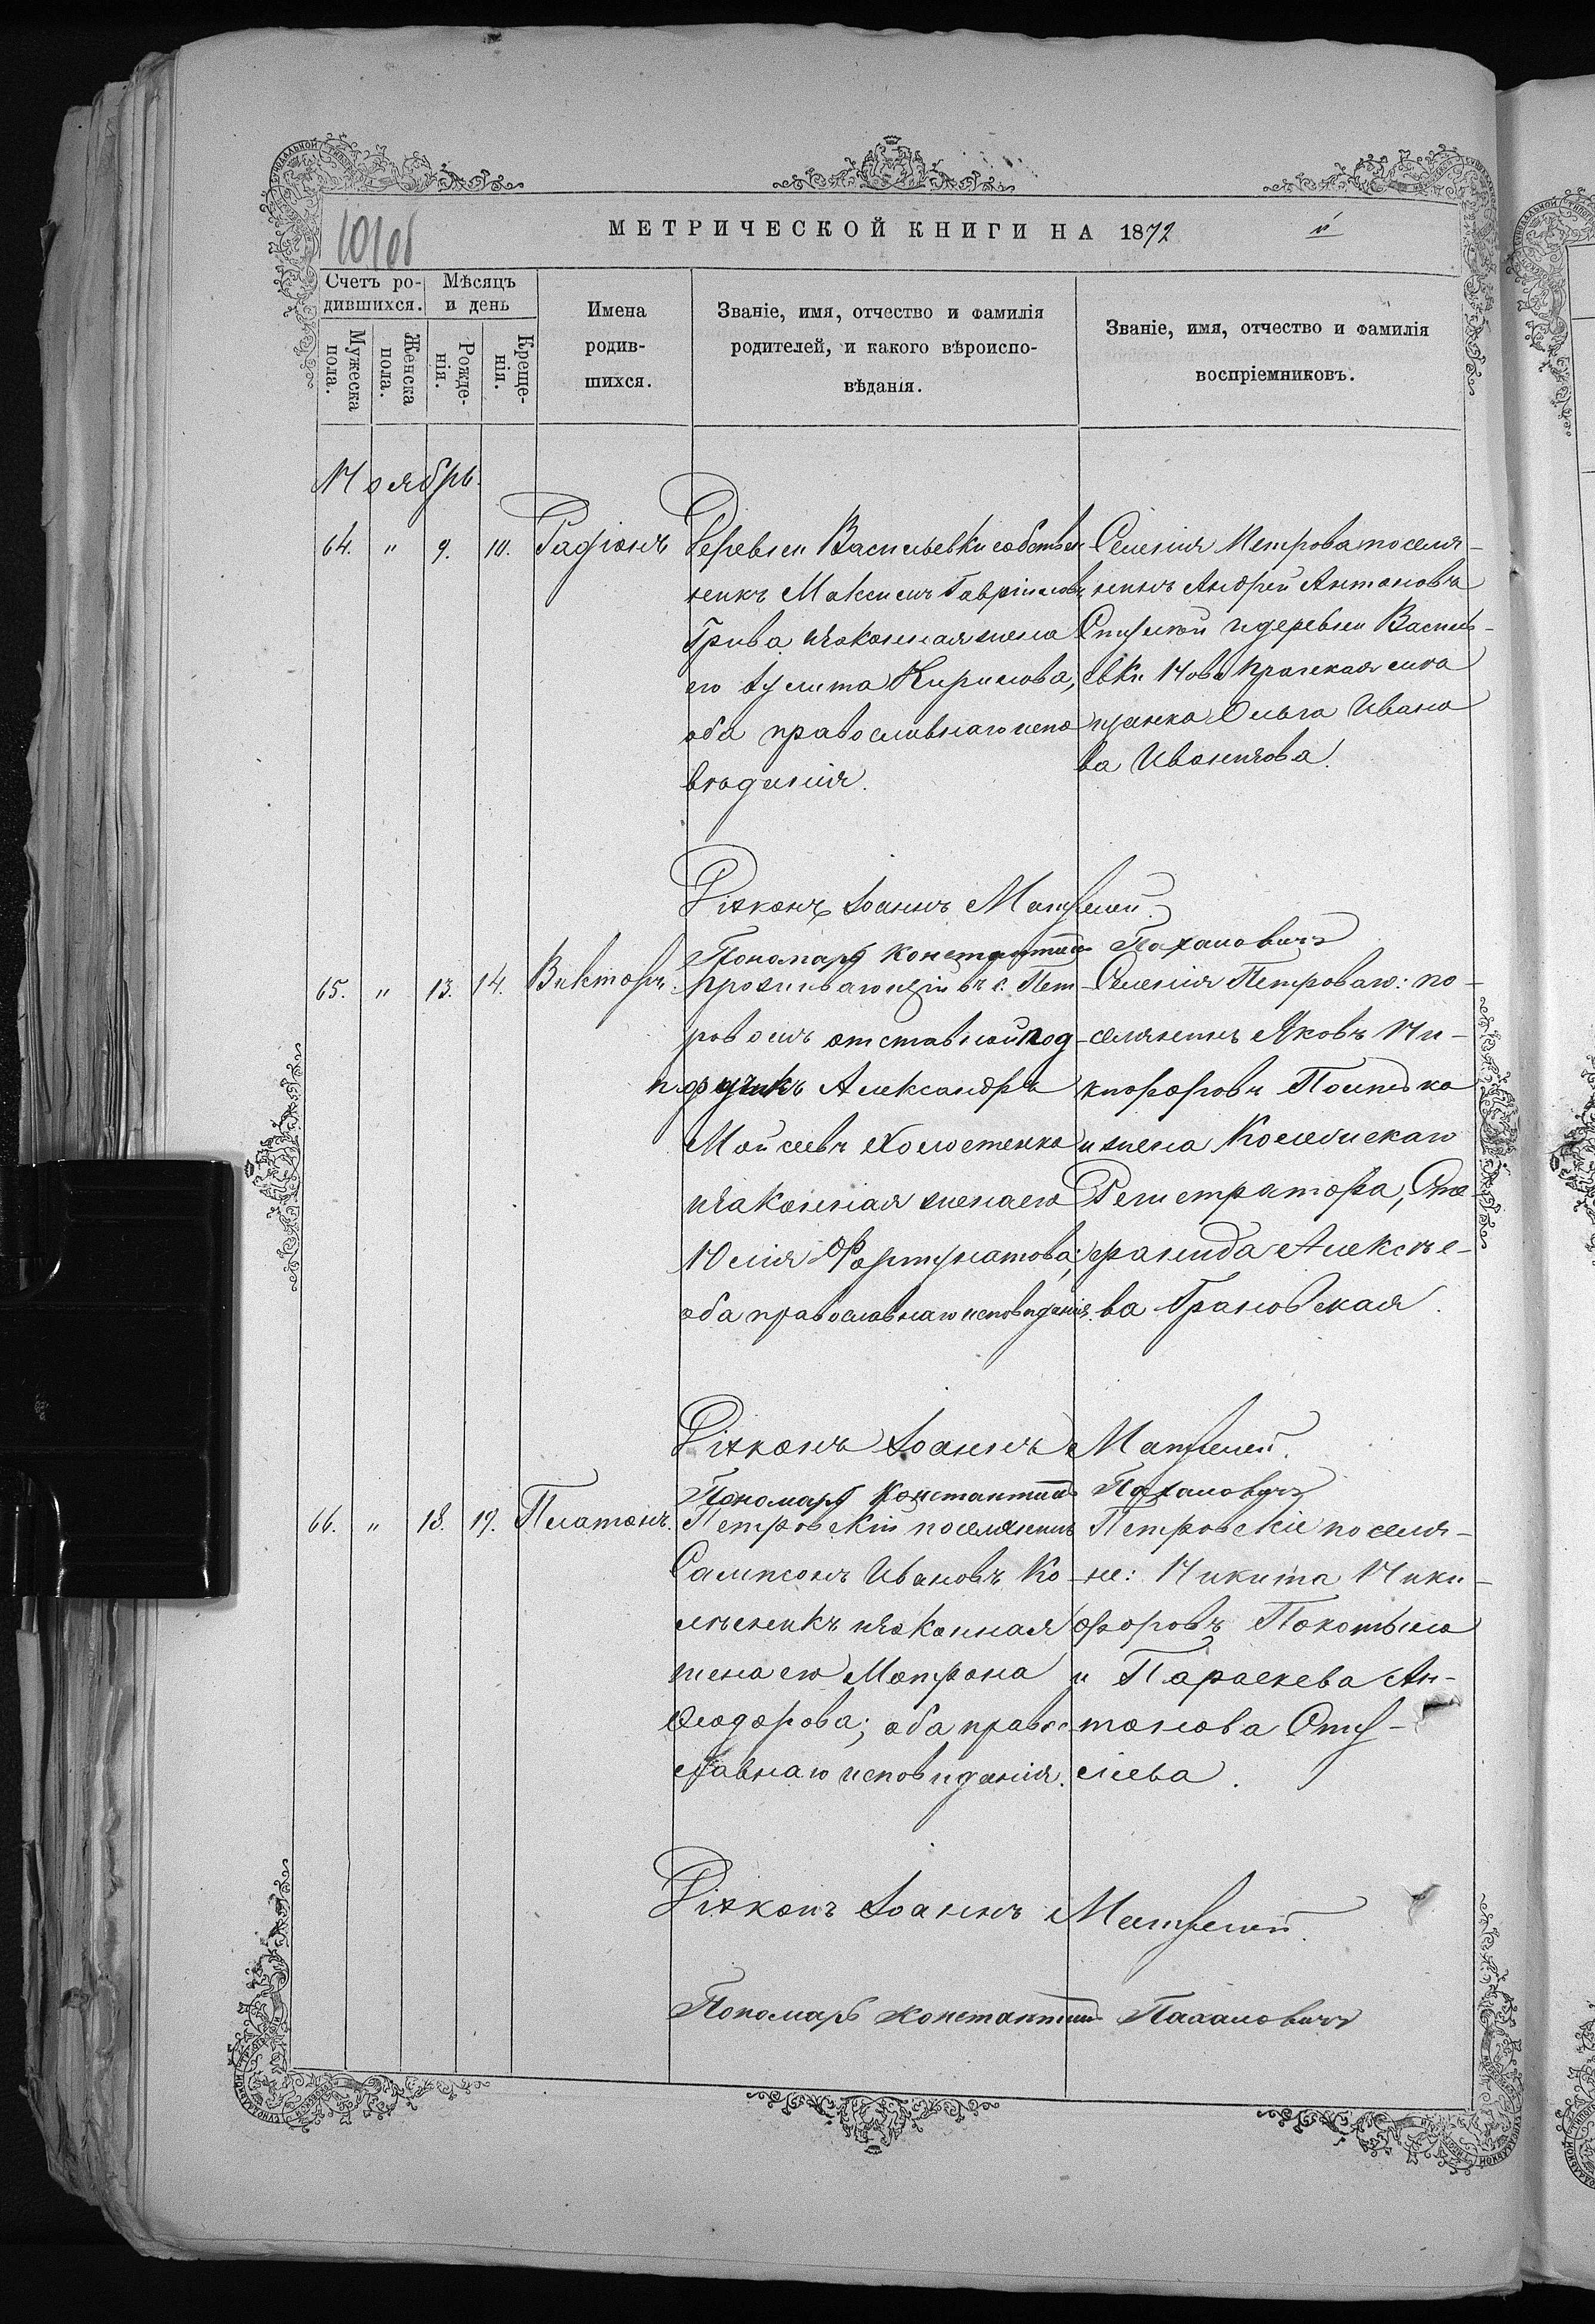 МЕТРИЧЕСКОЙ КНИГИ НА 1872
Счетъ ро-
дившихся.
Мужеска пола.
Женска пола.
Мѣсяцъ
и день
Рожде-
нія.
Креще-
нія.
Имена
родив-
шихся.
Званіе, имя, отчество и фамилія
родителей, и какого вѣроиспо-
вѣданія.
Званіе, имя, отчество и фамилія
воспріемниковъ.
Ноябрь.
64. " 9. 10. Радіонъ
Деревни Васильевки собствен
никъ Максимъ Гавріиловъ
Грива и законная жена
его Іулита Кирилова,
оба православнаго испо
вѣданія.
Селенія Петрова поселя-
нинъ Андрей Антоновъ
и деревни Василь-
евки
Ольга Ивано
ва
Діаконъ Іоаннъ
Пономарь Константинъ Пахаловичъ
65. " 13. 14. Викторъ.
Проживающій въ с. Пет-
ровомъ отставной под-
поручикъ Александръ
Мойсеевъ Холостенко
и законная жена его
Юлія Фортунатова;
оба православнаго исповиданія.
Селенія Петроваго: по-
селянинъ Яковъ Ни-
кифоровъ
и жена Колежскаго
Регистратора, Сте-
фанида Алексѣе-
ва Грановская.
Діаконъ Іоаннъ
Пономарь Константинъ Пахаловичъ
66. " 18. 19. Платонъ.
Петровскій поселянинъ
Сампсонъ Ивановъ Ко-
лѣсникъ и законная
жена его Матрона
Феодорова; оба право-
славнаго исповиданія.
Петровскіе поселя-
не: Никита Ники-
форовъ Покотыло
и Параскева Ан-
тонова
Діаконъ Іоаннъ
Пономарь Константинъ Пахаловичъ